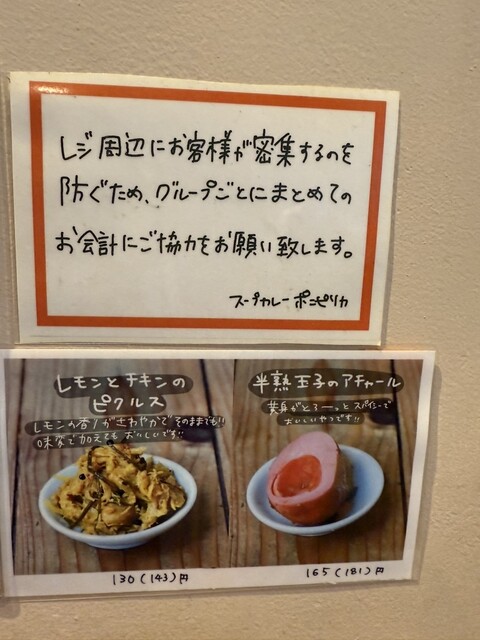 レジ周辺にお客様が密集するのを
防ぐため、グループごとにまとめての
お会計にご協力をお願い致します。
スープカレー ポニピリカ
レモンとチキンの
ピクルス
レモンの香りがさわやかで そのままでも!!
味変で加えても おいしいです!!
130(143)円
半熟玉子のアチャール
黄身がとろーっと スパイシーで
おいしいやつです!!
165(181)円